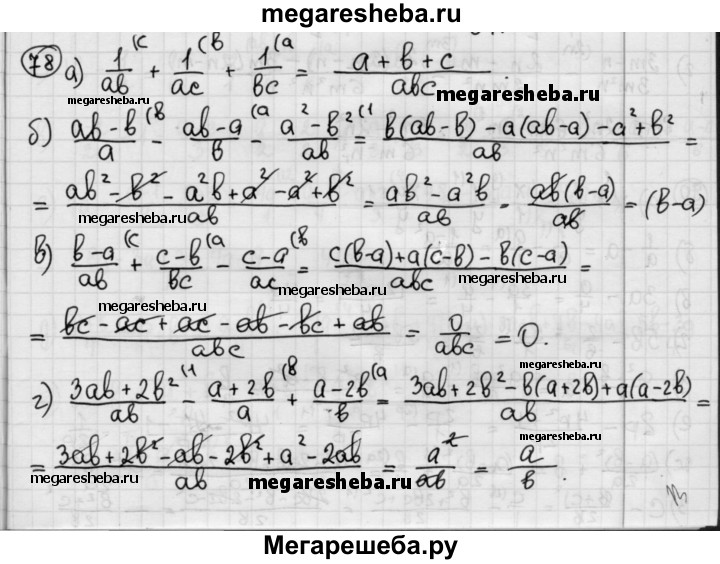 megaresheba.ru
78 а) 1/ab (c + 1/ac (b + 1/bc (a = (a + b + c)/abc
megaresheba.ru megaresheba.ru
б) (ab - b)/a (b - (ab - a)/b (a - (a² - b²)/ab (1 = (b(ab - b) - a(ab - a) - a² + b²)/ab =
= (ab² - b² - a²b + a² - a² + b²)/ab = (ab² - a²b)/ab = ab(b - a)/ab = (b - a)
megaresheba.ru megaresheba.ru
в) (b - a)/ab (c + (c - b)/bc (a - (c - a)/ac (b = (c(b - a) + a(c - b) - b(c - a))/abc =
megaresheba.ru megaresheba.ru
= (bc - ac + ac - ab - bc + ab)/abc = 0/abc = 0.
megaresheba.ru
г) (3ab + 2b²)/ab (1 - (a + 2b)/a (b + (a - 2b)/b (a = (3ab + 2b² - b(a + 2b) + a(a - 2b))/ab =
megaresheba.ru
= (3ab + 2b² - ab - 2b² + a² - 2ab)/ab = a²/ab = a/b.
megaresheba.ru megaresheba.ru
Мегарешеба.ру